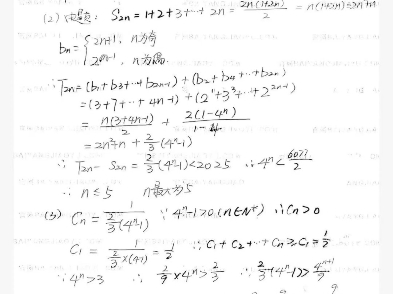 (2) 由题意: S₂ₙ = 1+2+3+⋯+2n = 2n(1+2n)/2 = n(1+2n) = 2n²+n
bₙ = { 2n+1, n为奇
2ⁿ⁻¹, n为偶
∴ T₂ₙ = (b₁+b₃+⋯+b₂ₙ₋₁) + (b₂+b₄+⋯+b₂ₙ)
= (3+7+⋯+4n-1) + (2¹+3³+⋯+2²ⁿ⁻¹)
= n(3+4n-1)/2 + 2(1-4ⁿ)/1-4
= 2n²+n + 2/3(4ⁿ-1)
∴ T₂ₙ - S₂ₙ = 2/3(4ⁿ-1) < 2025 ∴ 4ⁿ < 6077/2
∴ n ≤ 5 n最大为5
(3) Cₙ = 1/(2/3(4ⁿ-1)) ∵ 4ⁿ-1>0 (n∈N*) ∴ Cₙ>0
C₁ = 1/(2/3×(4-1)) = 1/2 ∴ C₁+C₂+⋯+Cₙ ≥ C₁ = 1/2
∵ 4ⁿ>3 ∴ 2/9×4ⁿ > 2/3 ∴ 2/3(4ⁿ-1) > 4ⁿ⁺¹/9